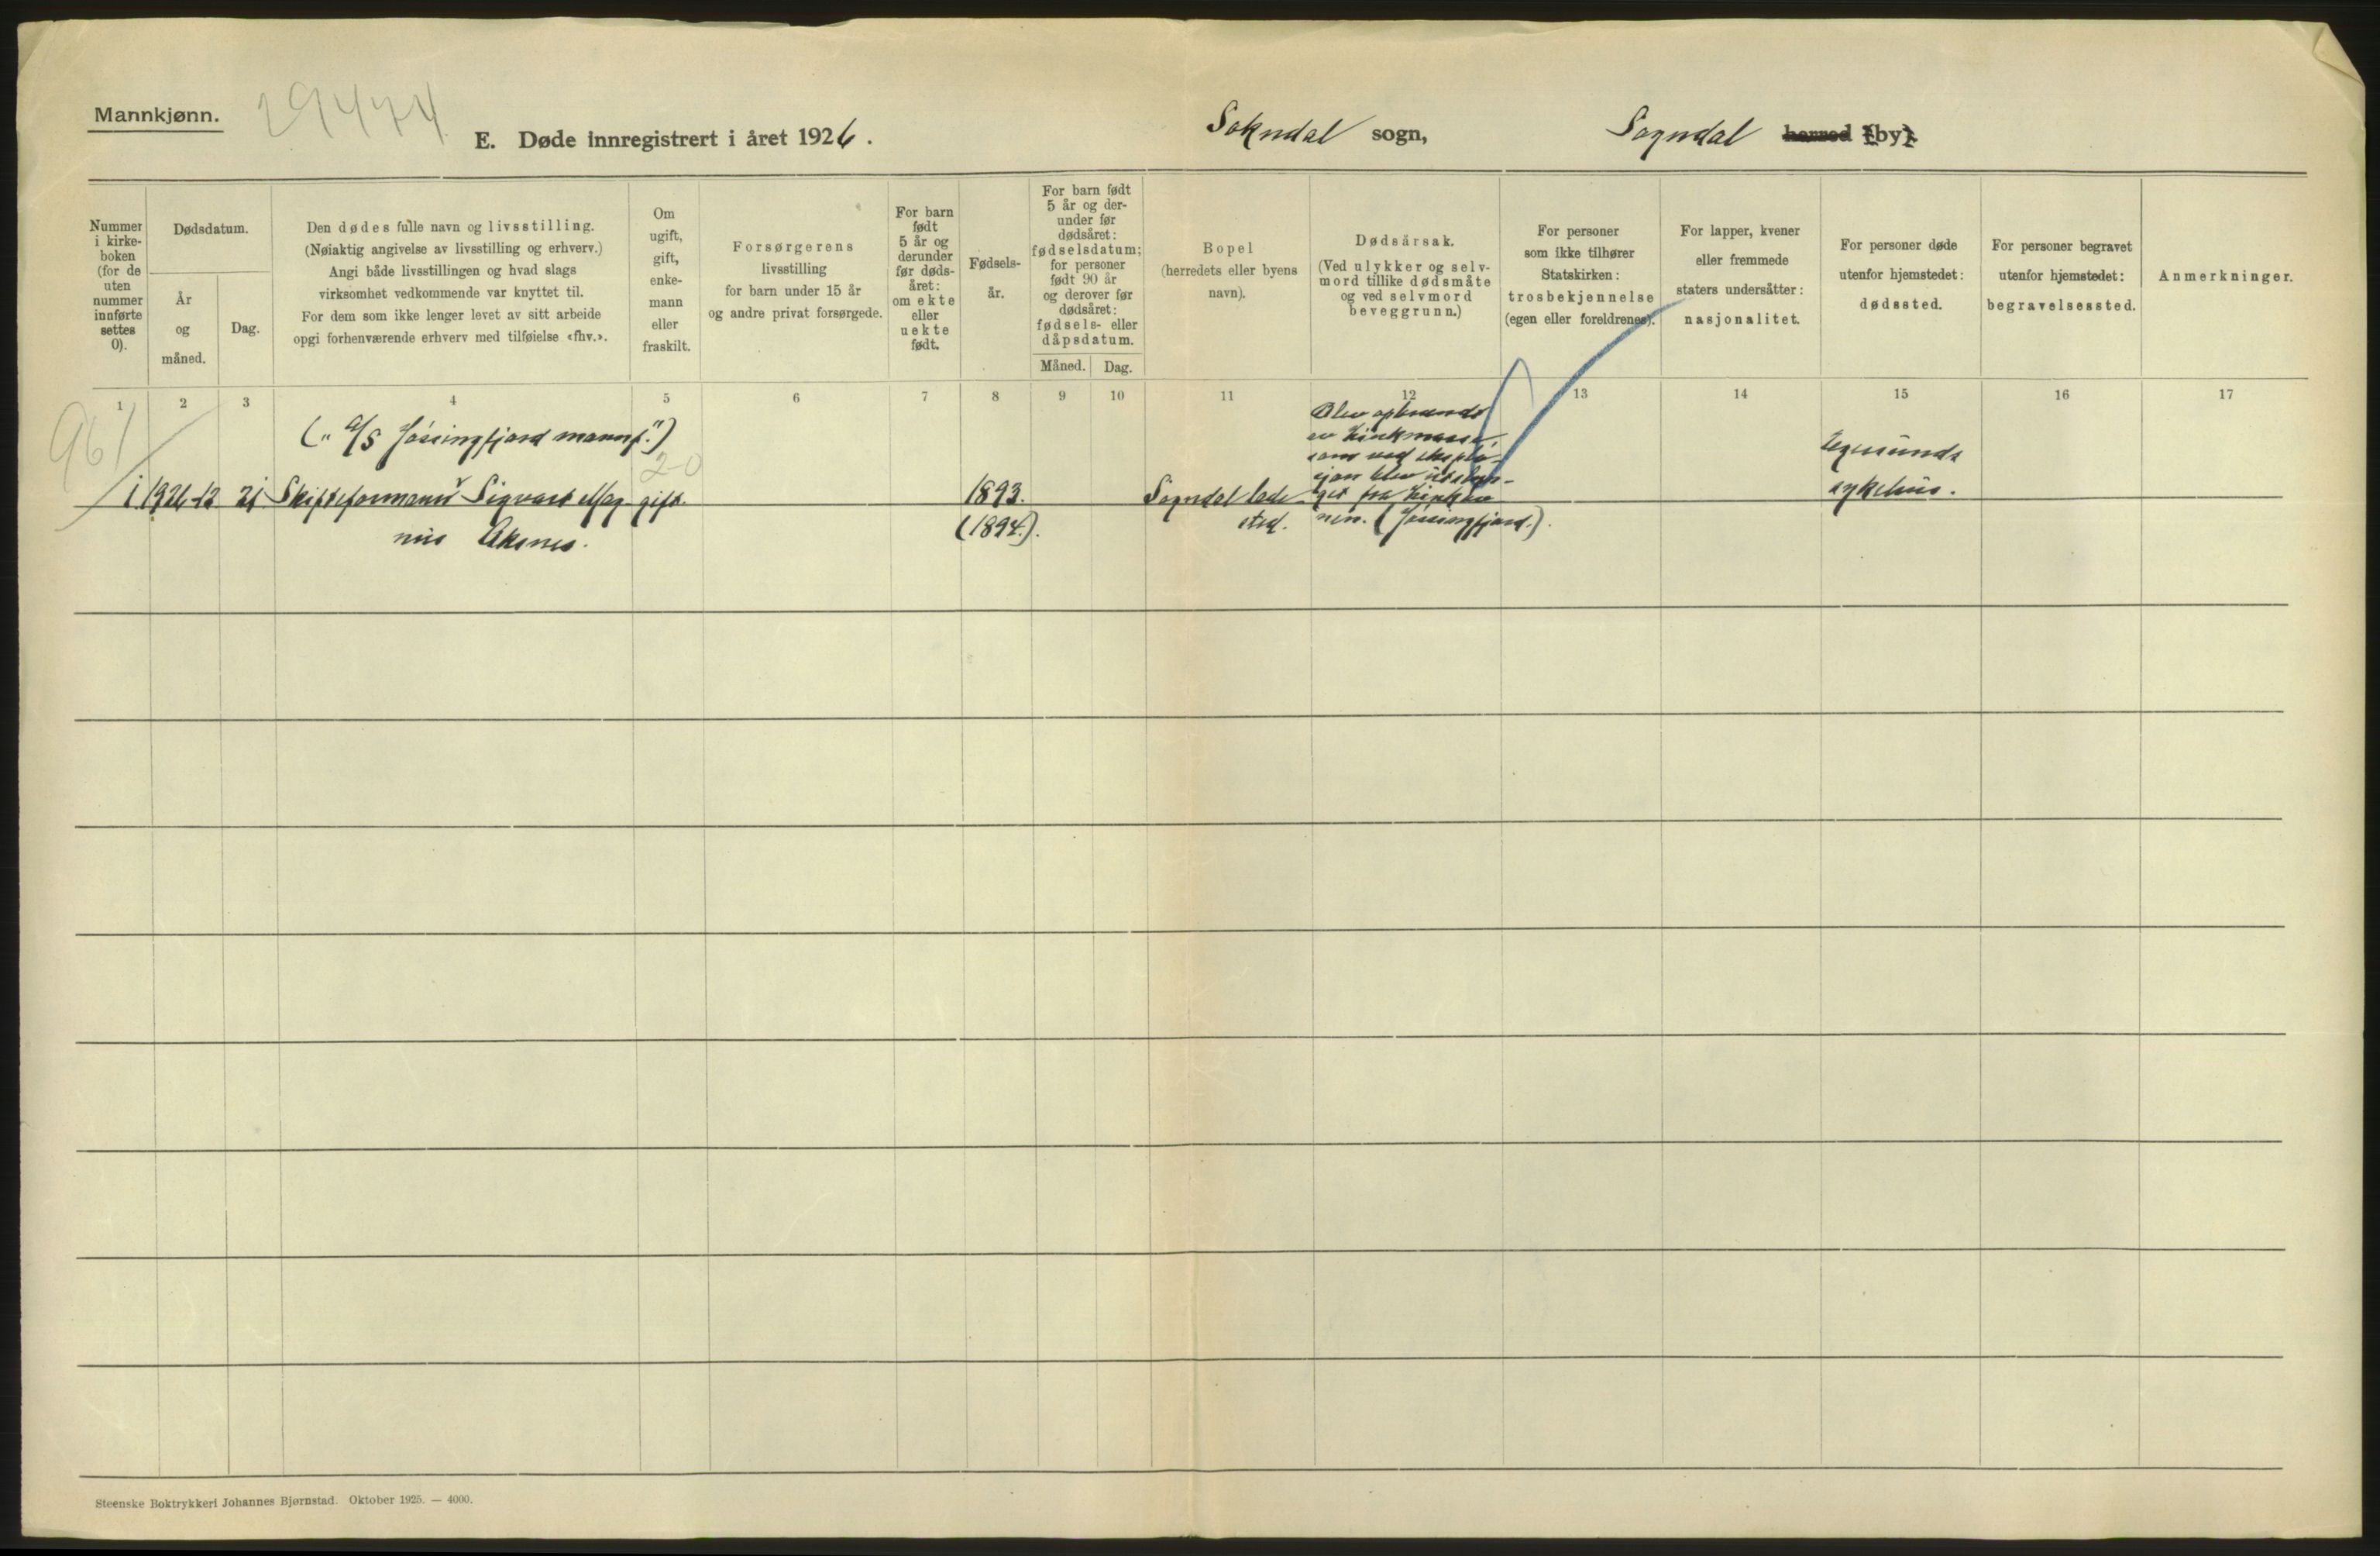 Mannkjønn.
29474
E. Døde innregistrert i året 1926.
Sokndal sogn,
Sogndal herred (by).
Nummer i kirke- boken (for de uten nummer innførte settes 0).
Dødsdatum.
År og måned.
Dag.
Den dødes fulle navn og livsstilling.
(Nøiaktig angivelse av livsstilling og erhverv.)
Angi både livsstillingen og hvad slags
virksomhet vedkommende var knyttet til.
For dem som ikke lenger levet av sitt arbeide
opgi forhenværende erhverv med tilføielse «fhv.».
Om ugift, gift, enke- mann eller fraskilt.
Forsørgerens
livsstilling
for barn under 15 år
og andre privat forsørgede.
For barn født 5 år og derunder før døds- året: om ekte eller uekte født.
Fødsels- år.
For barn født 5 år og der- under før dødsåret: fødselsdatum; for personer født 90 år og derover før dødsåret: fødsels- eller dåpsdatum.
Måned.
Dag.
Bopel
(herredets eller byens
navn).
Dødsårsak.
(Ved ulykker og selv-
mord tillike dødsmåte
og ved selvmord
beveggrunn.)
For personer
som ikke tilhører
Statskirken:
trosbekjennelse
(egen eller foreldrenes).
For lapper, kvener
eller fremmede
staters undersåtter:
nasjonalitet.
For personer døde
utenfor hjemstedet:
dødssted.
For personer begravet
utenfor hjemstedet:
begravelsessted.
Anmerkninger.
1 2 3 4 5 6 7 8 9 10 11 12 13 14 15 16 17
961
("A/S Jøssingfjord manuf.")
20
1 1926-12 21 Skifteformann Sigvart Mag
nus Aksnes.
gift.
1893.
(1894).
Sogndal lade
sted.
Blev opbrændt
av kinkmasse,
som ved eksplo-
sjon blev utslyn-
get fra kinkov
nen. (Jøssingfjord.).
Egersunds
sykehus.
Steenske Boktrykkeri Johannes Bjørnstad. Oktober 1925. — 4000.